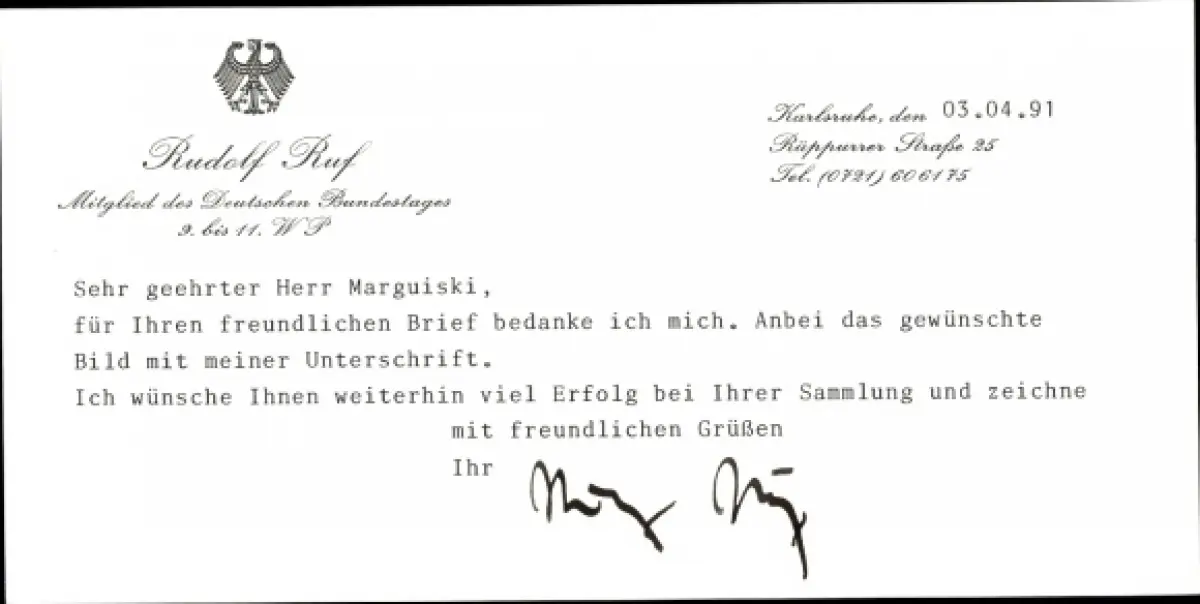 Rudolf Ruf
Mitglied des Deutschen Bundestages
9. bis 11. WP
Karlsruhe, den 03.04.91
Rüppurrer Straße 25
Tel. (0721) 606175
Sehr geehrter Herr Marguiski,
für Ihren freundlichen Brief bedanke ich mich. Anbei das gewünschte
Bild mit meiner Unterschrift.
Ich wünsche Ihnen weiterhin viel Erfolg bei Ihrer Sammlung und zeichne
mit freundlichen Grüßen
Ihr